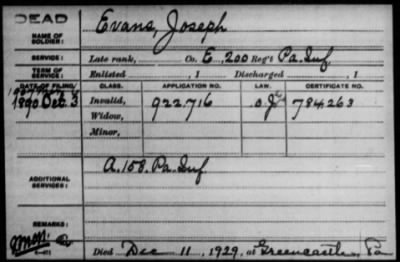 DEAD
Evans, Joseph
NAME OF SOLDIER:
SERVICE: Late rank, Co. E, 200 Reg't Pa. Inf.
TERM OF SERVICE: Enlisted , 1 Discharged , 1
DATE OF FILING: CLASS. APPLICATION NO. LAW. CERTIFICATE NO.
1890 Dec 3 Invalid, 922,716 784263
Widow,
Minor,
A. 158. Pa. Inf.
ADDITIONAL SERVICES:
REMARKS:
Died Dec 11, 1929, at Greencastle, Pa